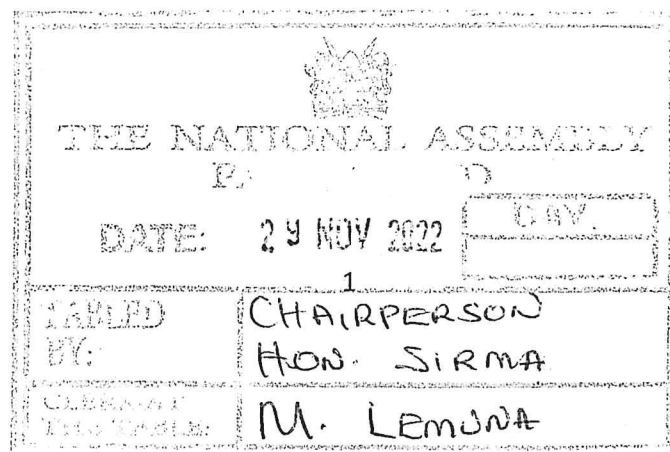 THE NATIONAL ASSEMBLY
DATE: 29 NOV 2022
DAY.
1
TABLED BY:
CHAIRPERSON
HON. SIRMA
CLERK-AT THE-TABLE:
M. LEMUNA